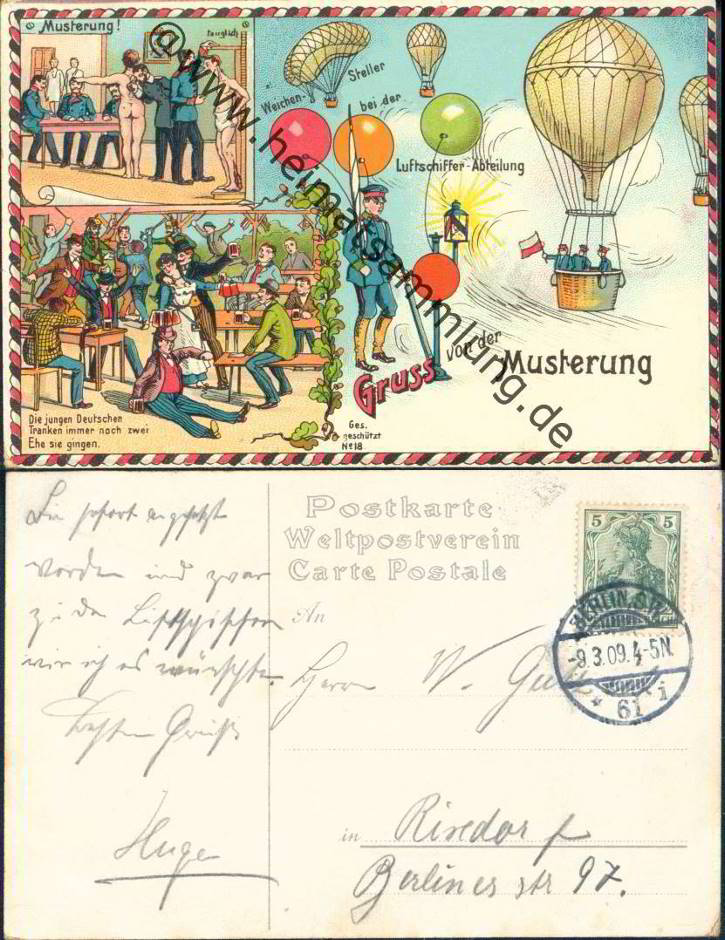 Musterung!
tauglich
Weichen-Steller
bei der
Luftschiffer-Abteilung
Gruss von der Musterung
Die jungen Deutschen
Tranken immer noch zwei
Ehe sie gingen.
Ges.
geschützt
No 18
@www.heimatsammlung.de
Postkarte
Weltpostverein
Carte Postale
5
BERLIN S.W.
-9.3.09.4-5N.
* 61 i
Bin sofort angesetzt
worden und zwar
zu den Luftschiffern
wie ich es wünschte.
Besten Gruß
Hugo
An
Herrn W.
in Rixdorf
Berliner str 97.